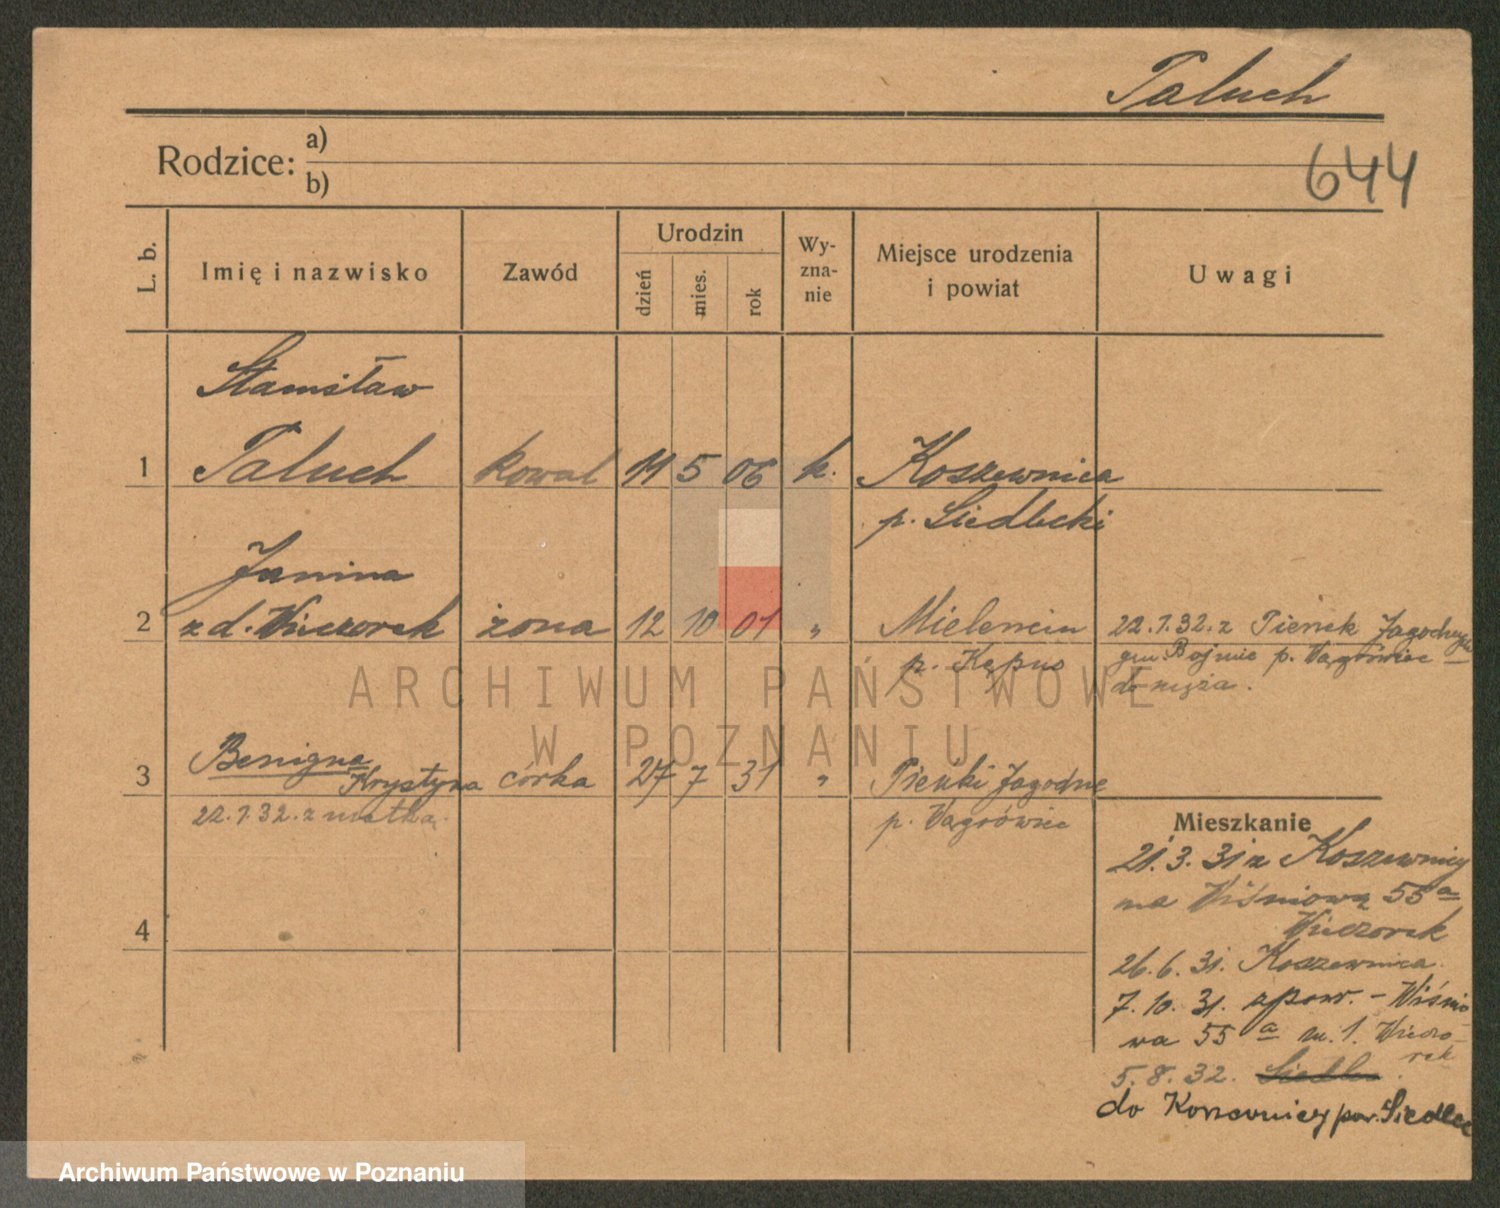 Paluch
644
Rodzice: a)
b)
L. b.
Imię i nazwisko
Zawód
Urodzin
dzień
mies.
rok
Wy-
zna-
nie
Miejsce urodzenia
i powiat
Uwagi
Stanisław
1 Paluch kowal 11 5 06 k. Koszewnica
p. Siedlecki
Janina
2 z d. Wieczorek żona 12 10 01 " Mielencin
p. Kępno
22.7.32. z Pienek Jagodnych
gm. Bojmie p. Węgrówiec
do męża.
3 Benigna
Krystyna córka 27 7 31 " Pieńki Jagodne
22.7.32. z matką. p. Węgrówiec
4
Mieszkanie
21.3.31 z Koszewnicy
na Wiśniową 55a
Wieczorek
26.6.31. Koszewnica.
7.10.31. zpow. - Wiśnio
wa 55a m. 1. Wieczo-
rek
5.8.32. Siedlce.
do pow. Siedlce
ARCHIWUM PAŃSTWOWE
W POZNANIU
Archiwum Państwowe w Poznaniu